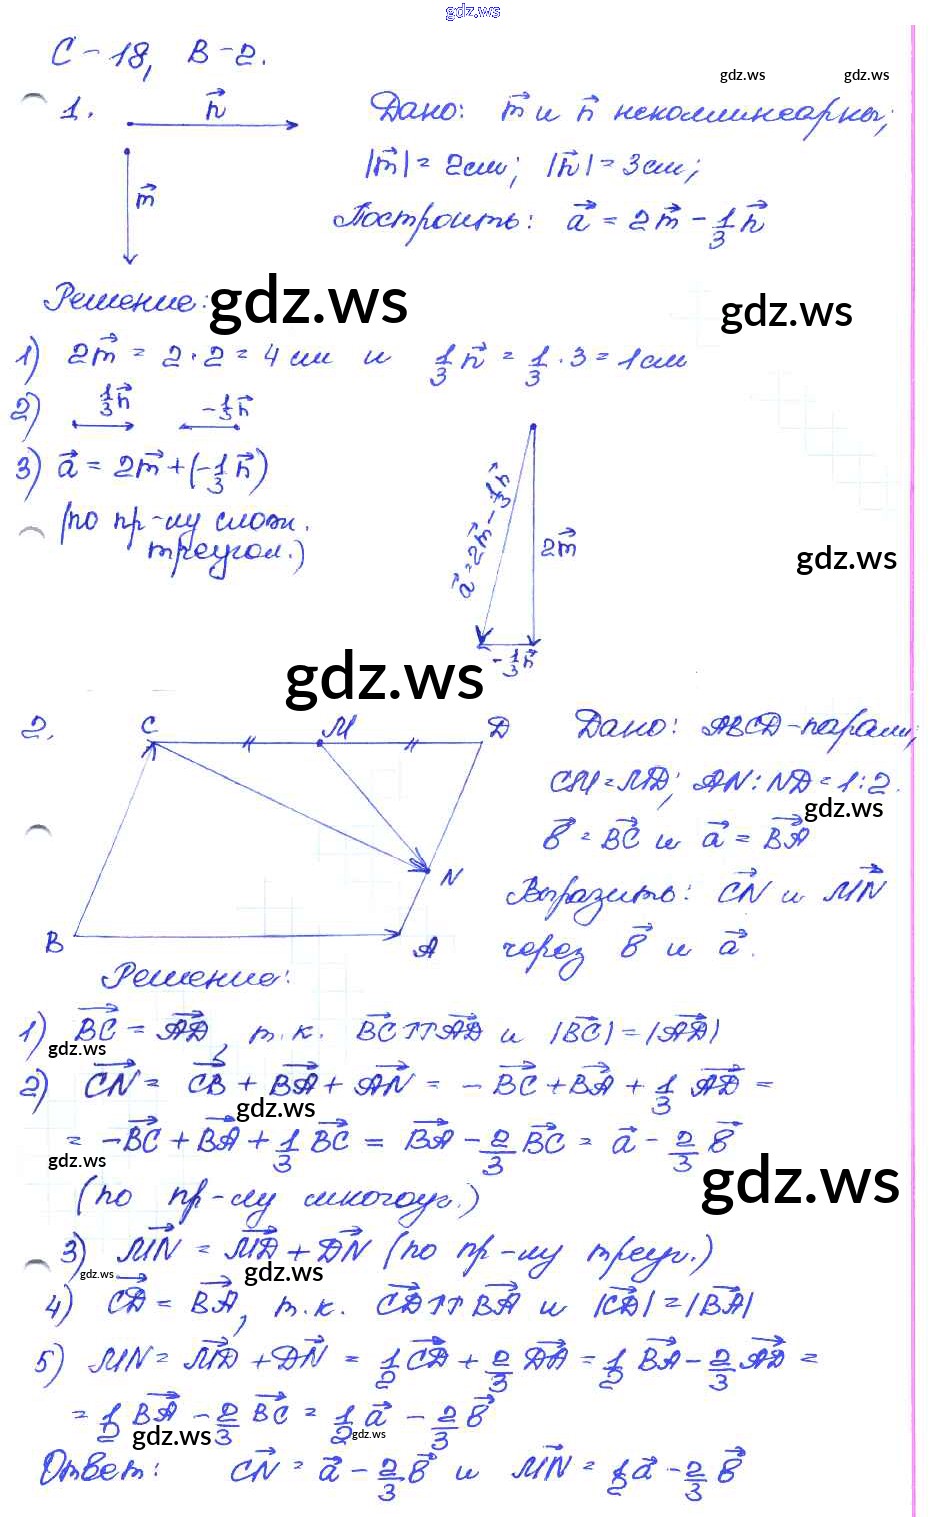 gdz.ws
С-18, В-2.
gdz.ws gdz.ws
1. n⃗ Дано: m⃗ и n⃗ неколлинеарны;
m⃗ |m⃗| = 2см; |n⃗| = 3см;
Построить: a⃗ = 2m⃗ - 1/3 n⃗
Решение:
gdz.ws gdz.ws
1) 2m⃗ = 2·2 = 4 см и 1/3 n⃗ = 1/3 · 3 = 1см
2) 1/3 n⃗ -1/3 n⃗
3) a⃗ = 2m⃗ + (-1/3 n⃗)
(по пр-лу слож.
треугол.)
a⃗ = 2m⃗ - 1/3 n⃗ 2m⃗
-1/3 n⃗
gdz.ws
gdz.ws
2. C M D Дано: ABCD-парал.;
CM = MD; AN : ND = 1:2.
gdz.ws
b⃗ = BC⃗ и a⃗ = BA⃗
N Выразить: CN⃗ и MN⃗
B A через b⃗ и a⃗.
Решение:
1) BC⃗ = AD⃗, т.к. BC⃗ ↑↑ AD⃗ и |BC⃗| = |AD⃗|
gdz.ws
2) CN⃗ = CB⃗ + BA⃗ + AN⃗ = -BC⃗ + BA⃗ + 1/3 AD⃗ =
gdz.ws
= -BC⃗ + BA⃗ + 1/3 BC⃗ = BA⃗ - 2/3 BC⃗ = a⃗ - 2/3 b⃗
gdz.ws gdz.ws
(по пр-лу многоуг.)
3) MN⃗ = MD⃗ + DN⃗ (по пр-лу треуг.)
gdz.ws gdz.ws
4) CD⃗ = BA⃗, т.к. CD⃗ ↑↑ BA⃗ и |CD⃗| = |BA⃗|
5) MN = MD⃗ + DN⃗ = 1/2 CD⃗ + 2/3 DA⃗ = 1/2 BA⃗ - 2/3 AD⃗ =
= 1/2 BA⃗ - 2/3 BC⃗ = 1/2 a⃗ - 2/3 b⃗
gdz.ws gdz.ws
Ответ: CN⃗ = a⃗ - 2/3 b⃗ и MN⃗ = 1/2 a⃗ - 2/3 b⃗